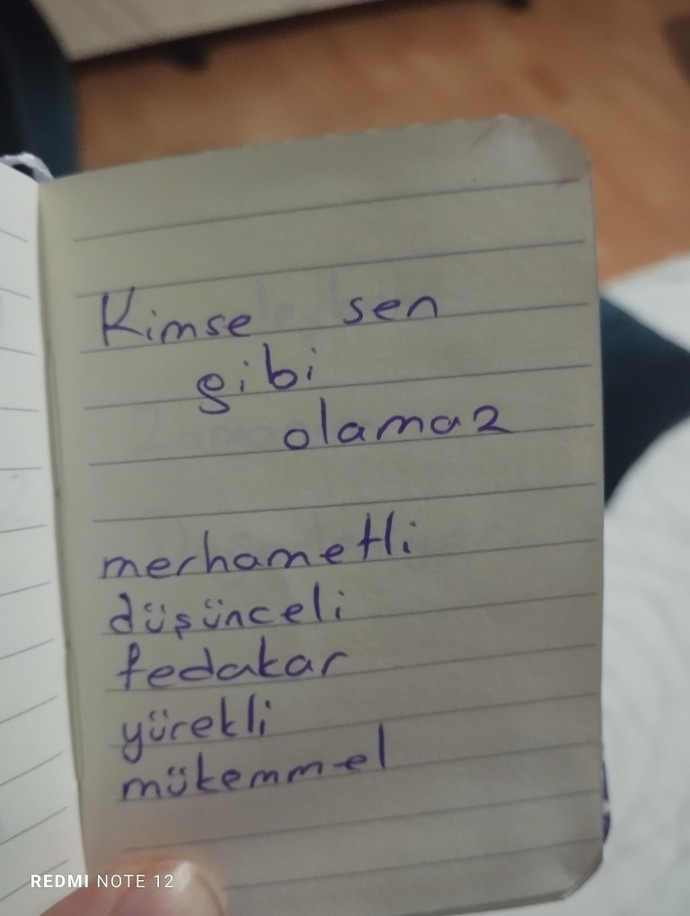 Kimse sen
gibi
olamaz
merhametli
düşünceli
fedakar
yürekli
mükemmel
REDMI NOTE 12